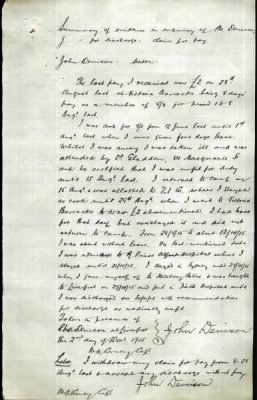 Summary of evidence in enquiry of Pte Denison
J - for discharge - claim for pay
"John Denison" states.
The last pay I received was £2 on 28th
August last at Victoria Barracks being 8 days'
pay as a member of for period 1 to 8
Augt last.
I was and for from 12 June last until 1st
Augt last when I was given four days leave.
Whilst I was away I was taken ill and was
attended by Dr Gladden, Macquarie St
and he certified that I was unfit for duty
until 15 Augt last. I returned to Camp on
15 Augt & was allotted to where I stayed
as cook until 28th Augt when I went to Victoria
Barracks to draw £2 abovementioned. I had leave
for that day but overstayed it and did not
return to camp. From 28/8/15 to about 12/10/15
I was absent without leave. On last mentioned date
I was admitted to R. Prince Alfred Hospital where I
stayed until 21/10/15. I stayed in Sydney until 29/10/15
when I gave myself up to Military Police & was brought
to Liverpool on 29/10/15 and put in Field Hospital until
I was discharged on with recommendation
for discharge as medically unfit.
Taken in presence of
Pte Denison at Liverpool
the 2nd day of Decr 1915
Capt
John Denison
Later. I withdraw my claim for pay from 8-28
Augt last & accept my discharge without pay.
John Denison
Capt